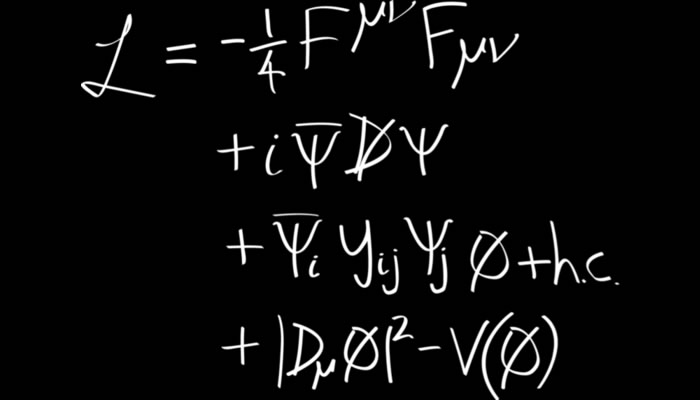 ℒ = -1/4 F^μν F_μν
+ i Ψ̄ D̸ Ψ
+ Ψ̄_i y_ij Ψ_j ϕ + h.c.
+ |D_μ ϕ|² - V(ϕ)